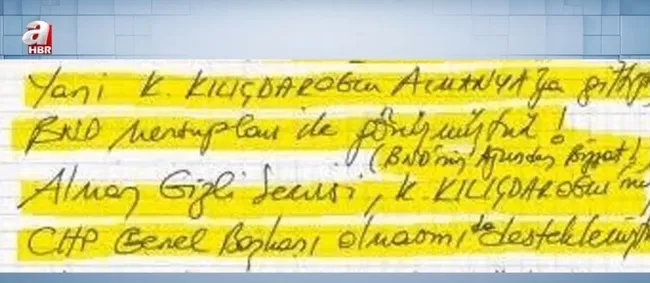 a
HBR
Yani K. KILIÇDAROĞLU ALMANYA'ya
BND mensupları ile görüşmüştür!
(BND'nin Ağzından Bizzat!)
Alman Gizli Servisi, K. KILIÇDAROĞLU'nu
CHP Genel Başkanı olmasını da